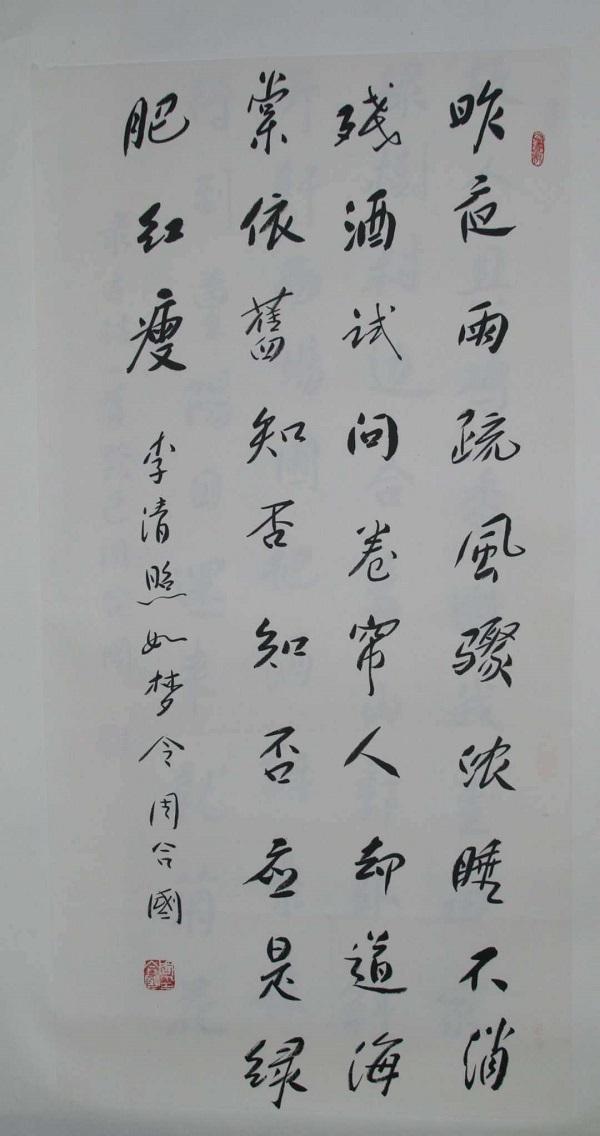 昨夜雨疏风骤浓睡不消
残酒试问卷帘人却道海
棠依舊知否知否应是绿
肥红瘦
李清照如梦令周合國